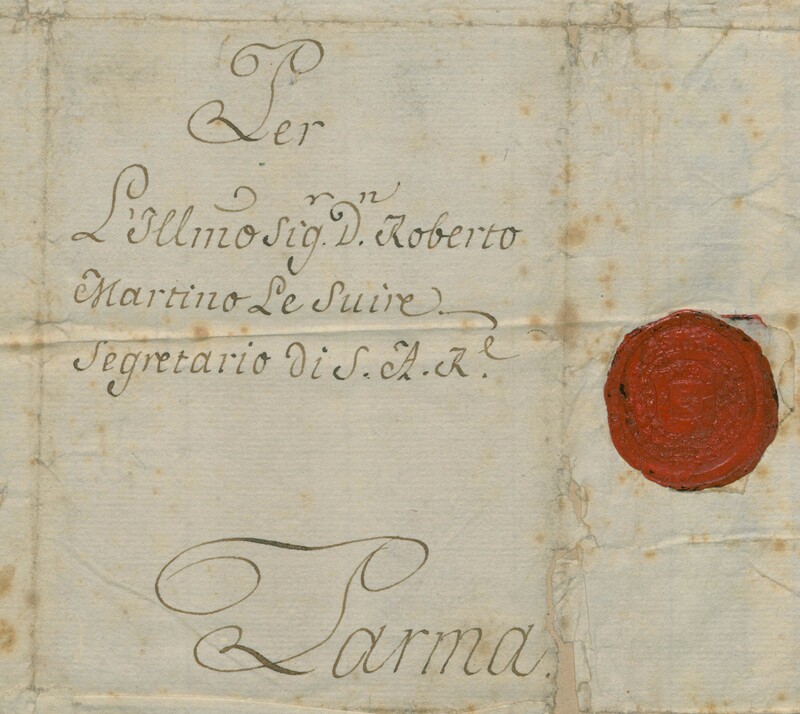 Per
L'Illmo Sigr. Dn. Roberto
Martino Le Suire
Segretario di S. A. Rle.
Parma.